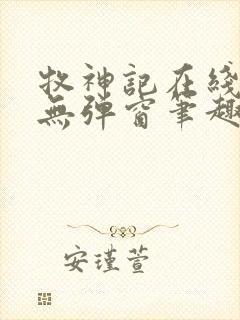 牧神記在綫
無彈窗筆趣
安瑾萱